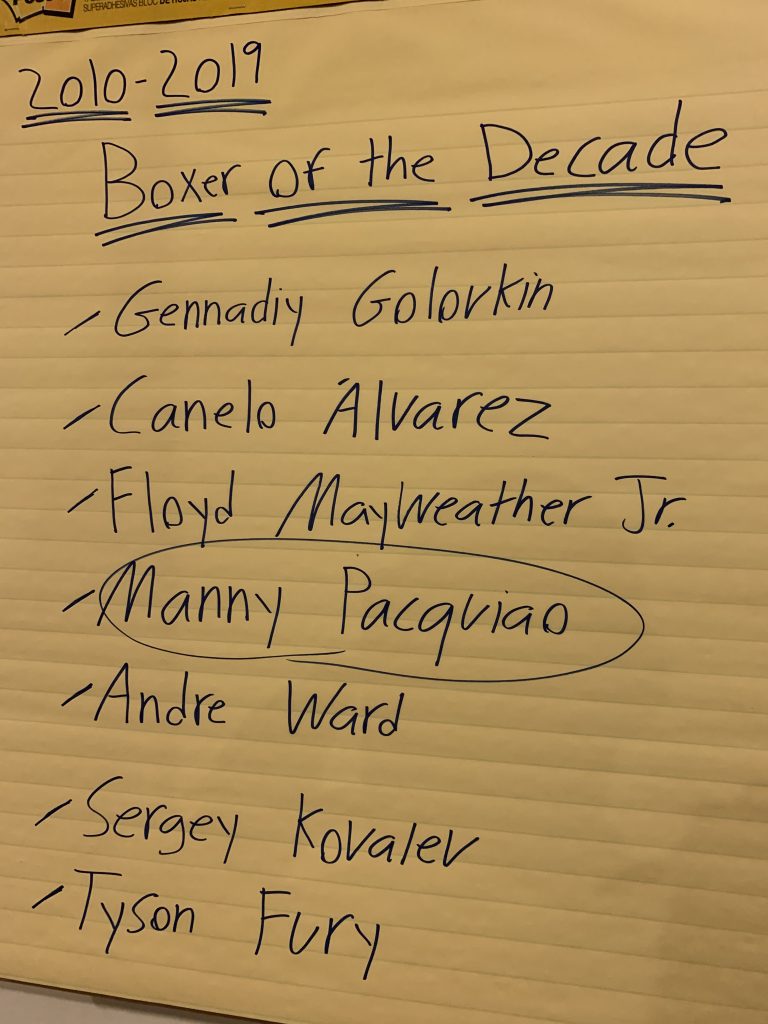 SUPERADHESIVAS BLOC DE
2010-2019
Boxer of the Decade
Gennadiy Golovkin
Canelo Álvarez
Floyd Mayweather Jr.
Manny Pacquiao
Andre Ward
Sergey Kovalev
Tyson Fury